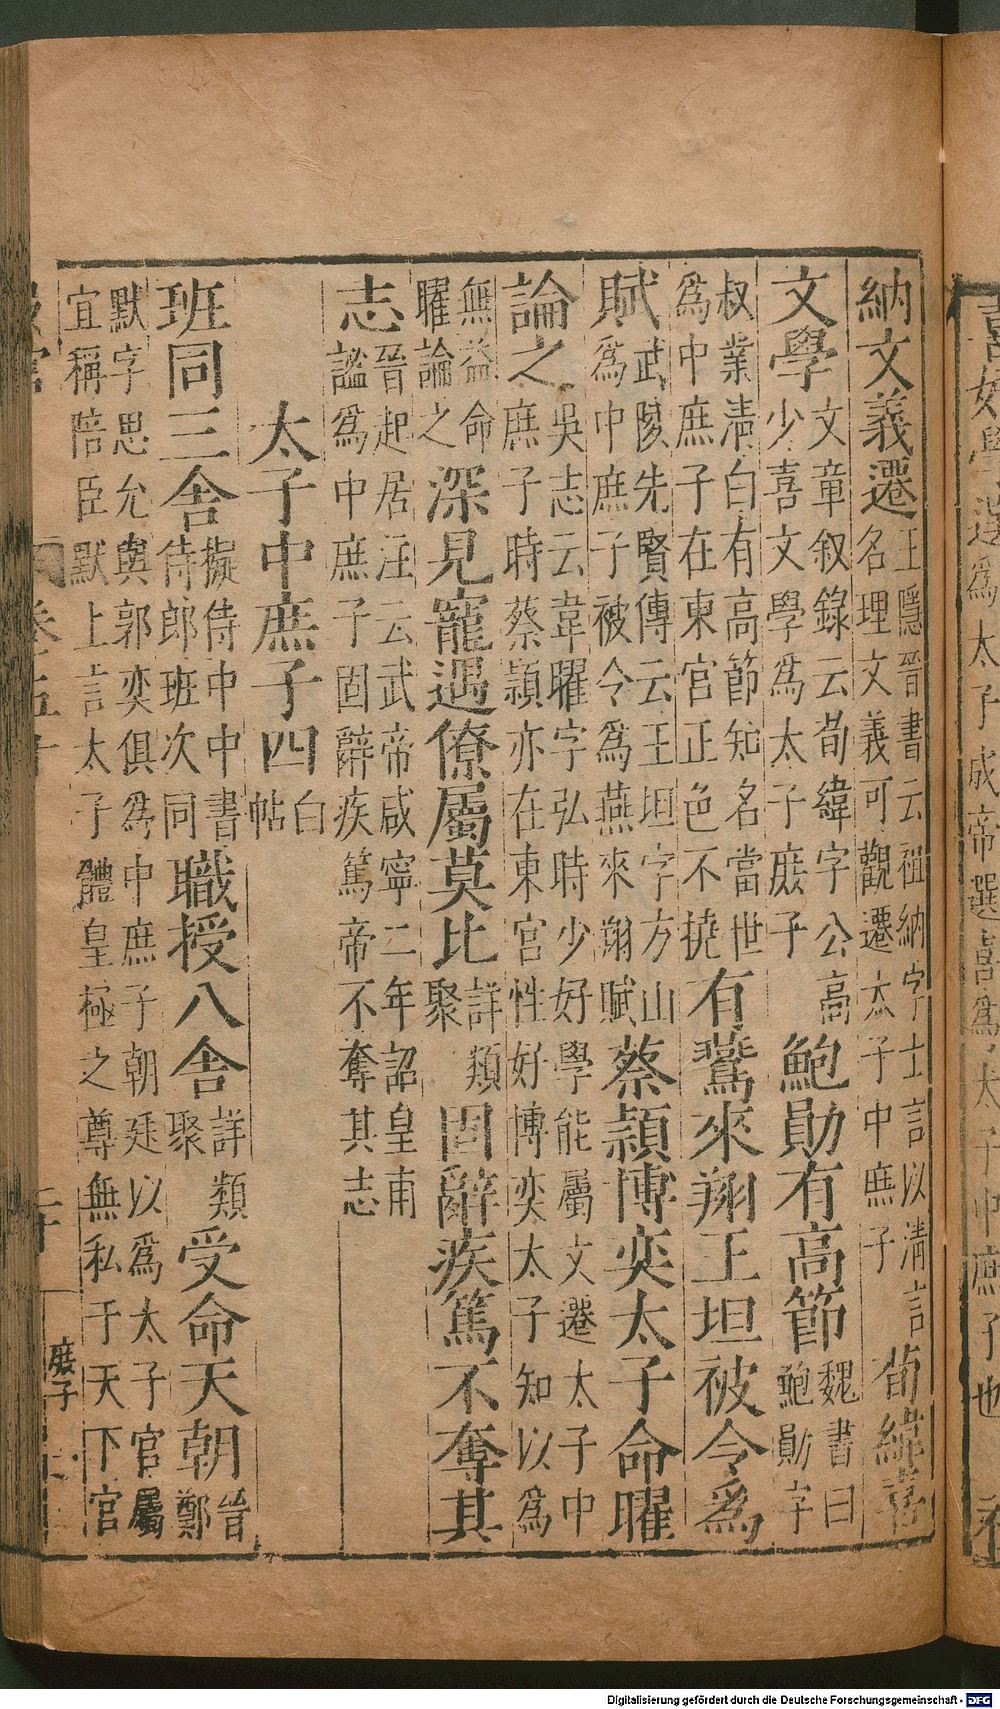 納文義遷王隱晉書云祖納字士言以清言名理文義可觀遷太子中庶子荀緯喜
文學文章叙錄云荀緯字公高少喜文學爲太子庶子鮑勛有高節魏書曰鮑勛字
叔業清白有高節知名當世爲中庶子在東宮正色不撓有鶩來翔王坦被令爲
賦武陵先賢傳云王坦字方山爲中庶子被令爲燕來翔賦蔡頴博奕太子命曜
論之吳志云韋曜字弘時少好學能屬文遷太子中庶子時蔡頴亦在東宮性好博奕太子知以爲
無益命曜論之深見寵遇僚屬莫比詳類聚固辭疾篤不奪其
志晉起居注云武帝咸寧二年詔皇甫謐爲中庶子固辭疾篤帝不奪其志
太子中庶子四白帖
班同三舍擬侍中中書侍郎班次同職授八舍詳類聚受命天朝晉鄭
默字思允與郭奕俱爲中庶子朝廷以爲太子官屬宜稱陪臣默上言太子體皇極之尊無私于天下官
庶子
喜好學遷爲太子成帝選喜爲太子中庶子也
Digitalisierung gefördert durch die Deutsche Forschungsgemeinschaft - DFG